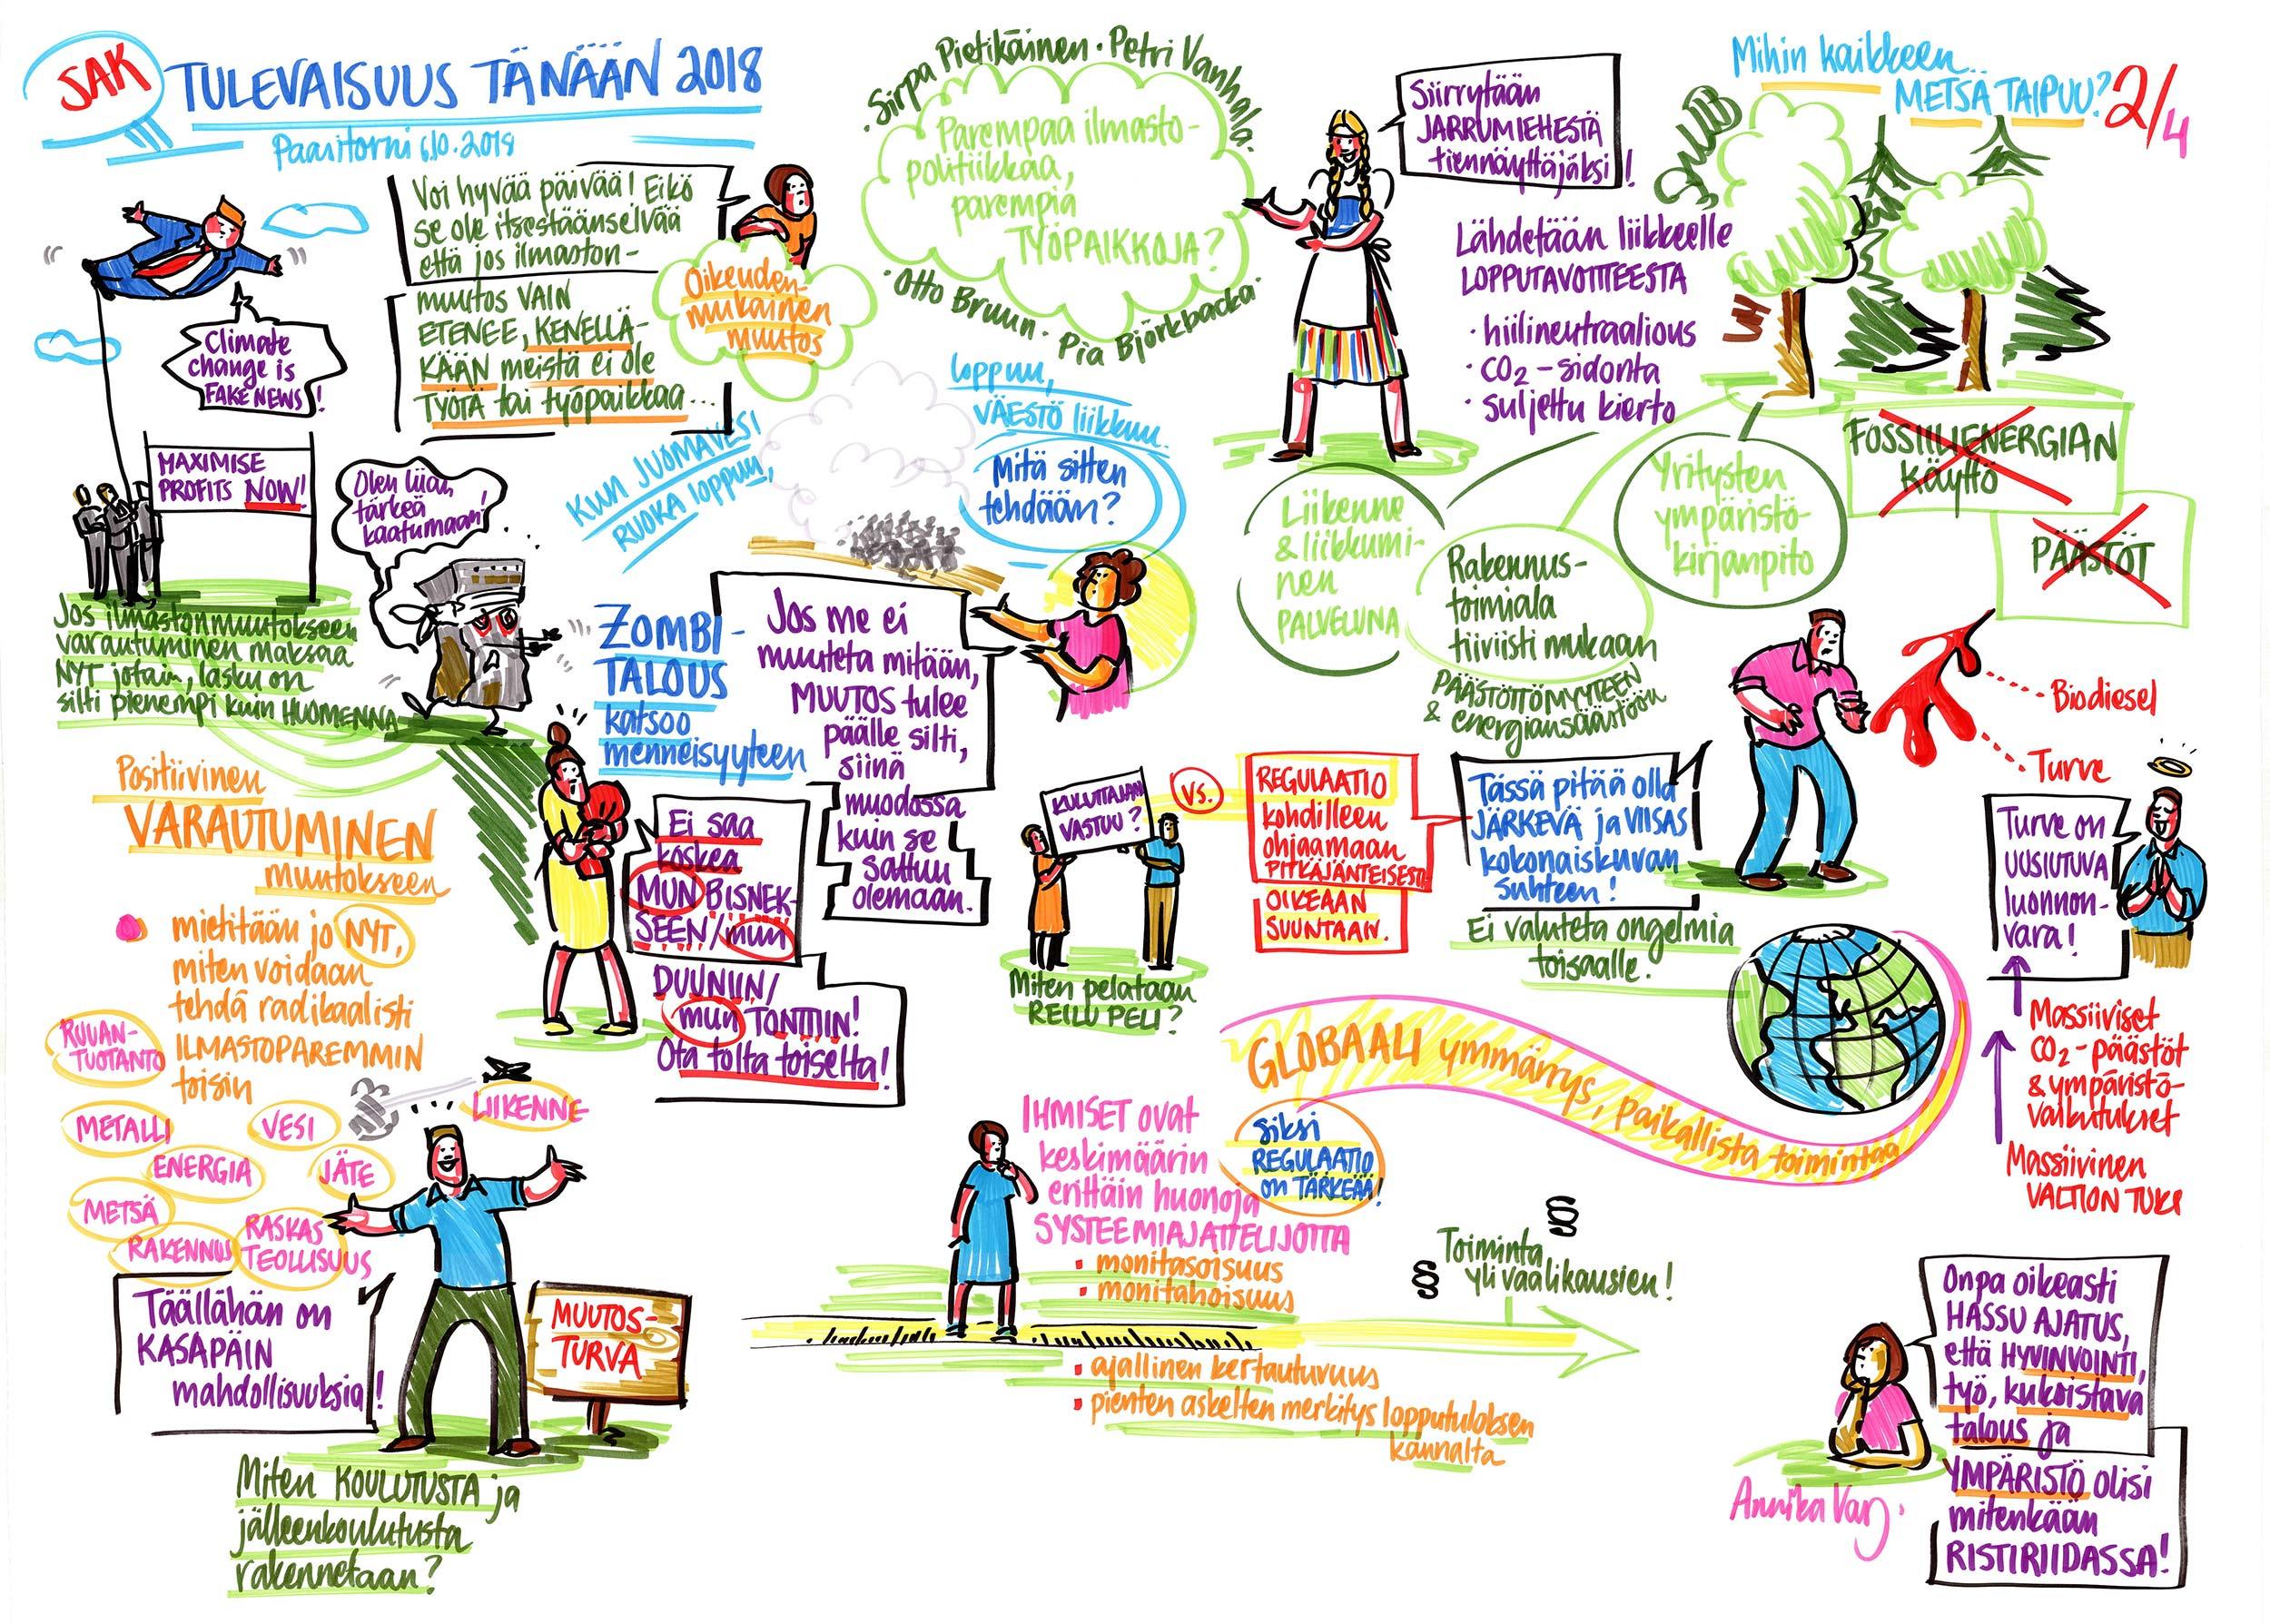 SAK
TULEVAISUUS TÄNÄÄN 2018
Paasitorni 6.10.2018
Voi hyvää päivää! Eikö
se ole itsestäänselvää
että jos ilmaston-
muutos VAIN
ETENEE, KENELLÄ-
KÄÄN meistä ei ole
TYÖTÄ tai työpaikkaa...
Oikeuden-
mukainen
muutos
Climate
change is
FAKE NEWS!
MAXIMISE
PROFITS NOW!
Jos ilmastonmuutokseen
varautuminen maksaa
NYT jotain, lasku on
silti pienempi kuin HUOMENNA
Olen liian
tärkeä
kaatumaan!
ZOMBI-
TALOUS
katsoo
menneisyyteen
KUN JUOMAVESI
RUOKA loppuu,
loppuu,
VÄESTÖ liikkuu.
Mitä sitten
tehdään?
Jos me ei
muuteta mitään,
MUUTOS tulee
päälle silti,
siinä
muodossa
kuin se
sattuu
olemaan.
Sirpa Pietikäinen · Petri Vanhala ·
Parempaa ilmasto-
politiikkaa,
parempia
TYÖPAIKKOJA?
· Otto Bruun · Pia Björkbacka ·
Siirrytään
JARRUMIEHESTÄ
tiennäyttäjäksi!
Lähdetään liikkeelle
LOPPUTAVOITTEESTA
· hiilineutraalious
· CO2 - sidonta
· suljettu kierto
Mihin kaikkeen
METSÄ TAIPUU?
2/4
Liikenne
& liikkumi-
nen
PALVELUNA
Rakennus-
toimiala
tiiviisti mukaan
PÄÄSTÖTTÖMYYTEEN
& energiansäästöön
Yritysten
ympäristö-
kirjanpito
FOSSIILIENERGIAN
Käyttö
PÄÄSTÖT
Biodiesel
Turve
Turve on
UUSIUTUVA
luonnon-
vara!
Massiiviset
CO2-päästöt
& ympäristö-
vaikutukset
Massiivinen
VALTION TUKI
Positiivinen
VARAUTUMINEN
muutokseen
mietitään jo NYT,
miten voidaan
tehdä radikaalisti
ILMASTOPAREMMIN
toisin
RUUAN-
TUOTANTO
METALLI
VESI
LIIKENNE
ENERGIA
JÄTE
METSÄ
RAKENNUS
RASKAS
TEOLLISUUS
Täällähän on
KASAPÄIN
mahdollisuuksia!
MUUTOS-
TURVA
Miten KOULUTUSTA ja
jälleenkoulutusta
rakennetaan?
Ei saa
koskea
MUN BISNEK-
SEEN/mun
DUUNIIN/
mun TONTTIIN!
Ota tolta toiselta!
KULUTTAJAN
VASTUU?
Miten pelataan
REILU PELI?
VS.
REGULAATIO
kohdilleen
ohjaamaan
PITKÄJÄNTEISESTI
OIKEAAN
SUUNTAAN.
Tässä pitää olla
JÄRKEVÄ ja VIISAS
kokonaiskuvan
suhteen!
Ei valuteta ongelmia
toisaalle.
GLOBAALI ymmärrys, paikallista toimintaa
IHMISET ovat
keskimäärin
erittäin huonoja
SYSTEEMIAJATTELIJOITA
monitasoisuus
monitahoisuus
Siksi
REGULAATIO
on TÄRKEÄÄ!
ajallinen kertautuvuus
pienten askelten merkitys lopputuloksen
kannalta
§
§
Toiminta
yli vaalikausien!
Onpa oikeasti
HASSU AJATUS,
että HYVINVOINTI,
työ, kukoistava
talous ja
YMPÄRISTÖ olisi
mitenkään
RISTIRIIDASSA!
Annika Varj.